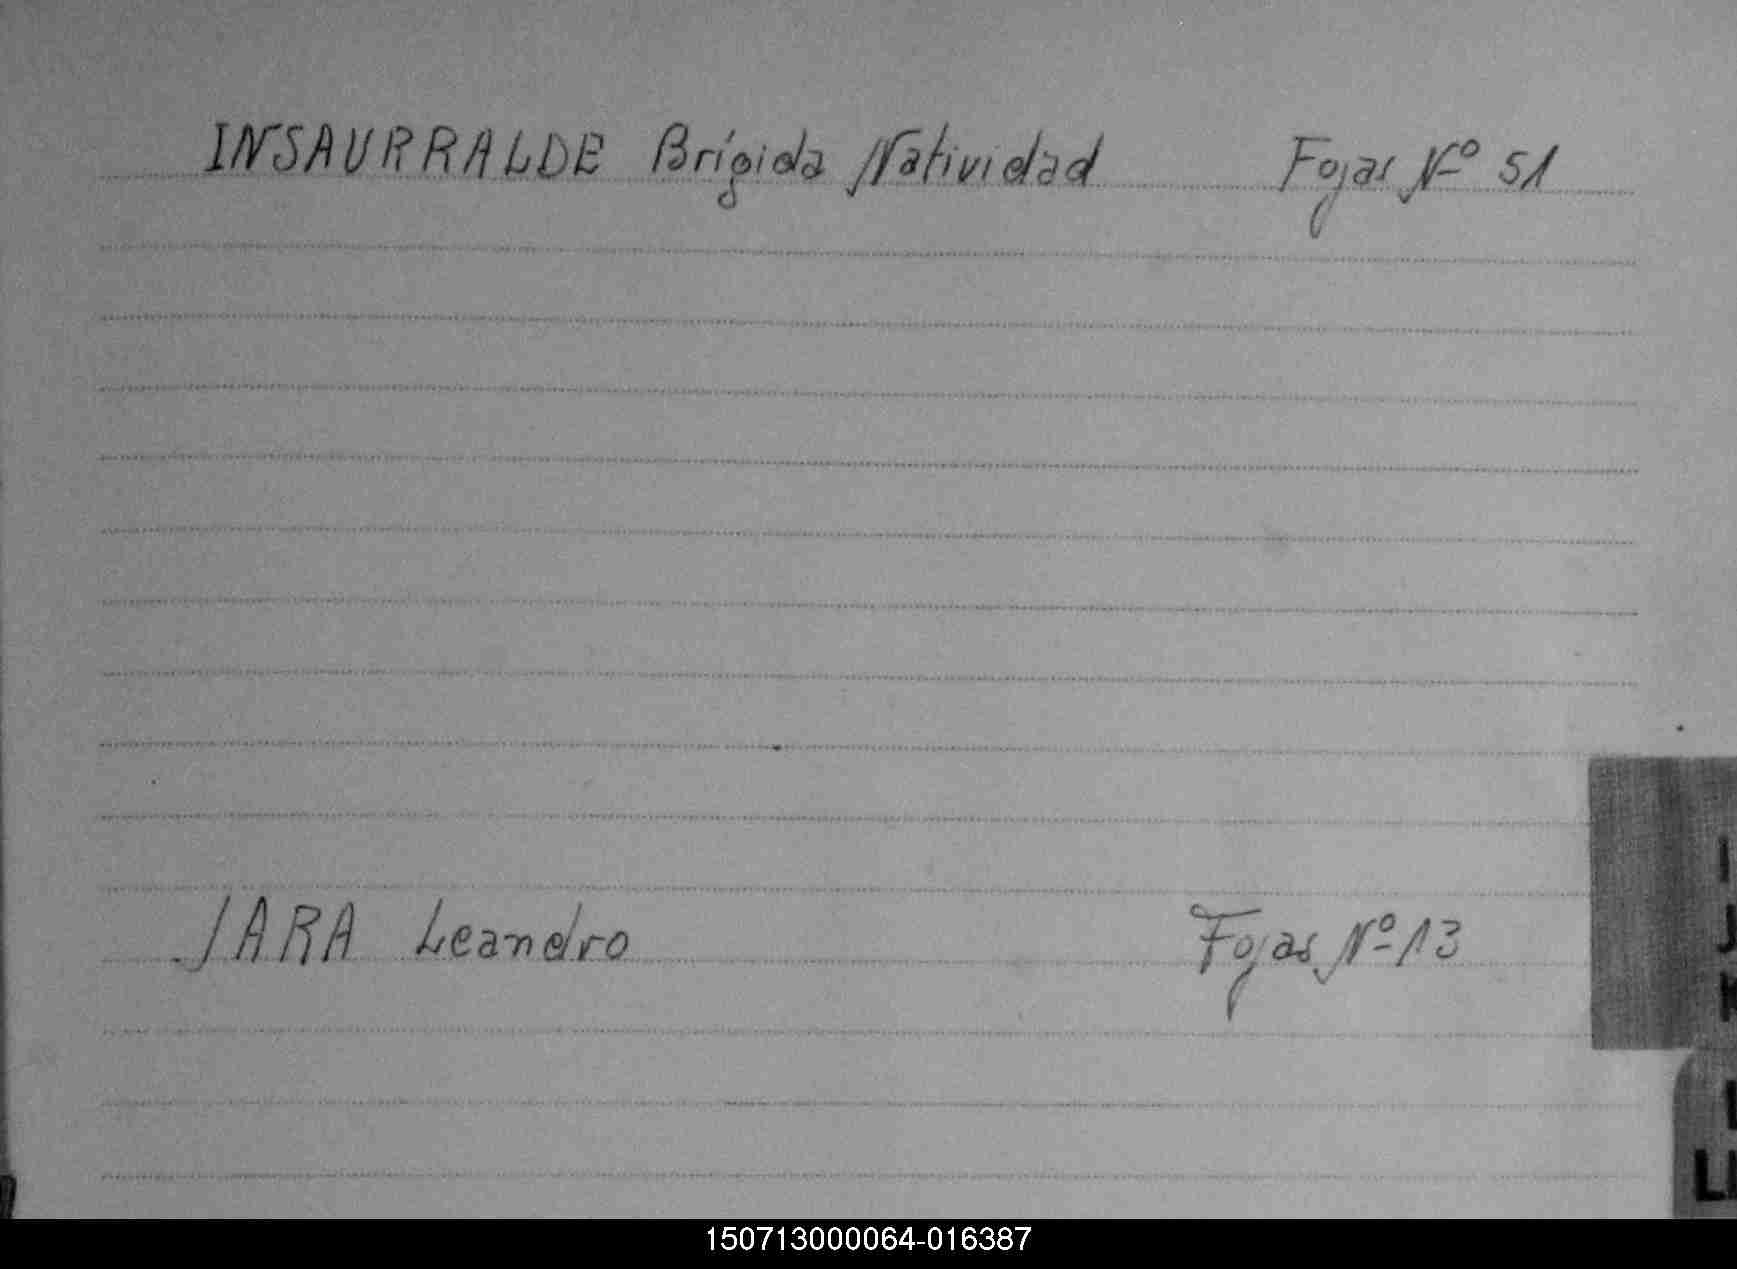 INSAURRALDE Brígida Natividad Fojas Nº 51
JARA Leandro Fojas Nº 13
I
J
K
L
LL
150713000064-016387